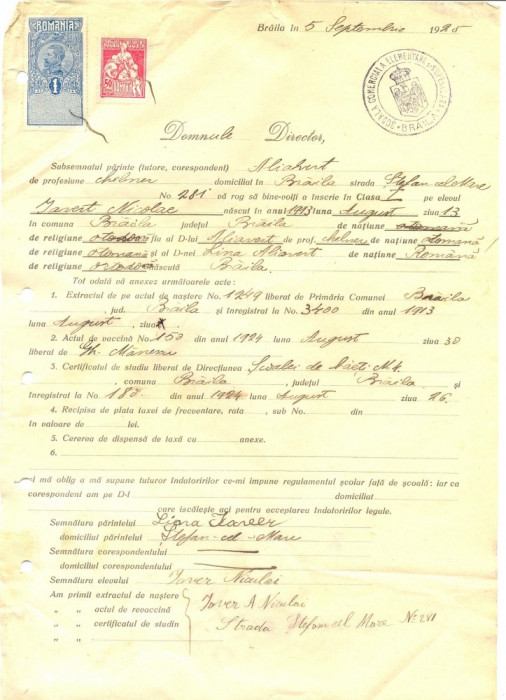 Brăila în 5 Septembrie 1925
ROMANIA
1
50
ȘCOALA COMERCIALĂ ELEMENTARĂ
BRĂILA
Domnule Director,
Subsemnatul părinte (tutore, corespondent) Aliavert
de profesiune chelner domiciliat în Brăila strada Ștefan cel Mare
No. 281 vă rog să bine-voiți a înscrie în Clasa I pe elevul
Iavert Nicolae născut în anul 1913 luna August ziua 13
în comuna Brăila județul Brăila de națiune otomană
de religiune fiu al D-lui Aliavert de prof. chelner de națiune otomană
de religiune otomană și al D-nei Lina Aliavert de națiune Română
de religiune născută Brăila.
Tot odată vă anexez următoarele acte:
1. Extractul de pe actul de naștere No. 1249 liberat de Primăria Comunei Brăila
, jud. Brăila și înregistrat la No. 3400 din anul 1913
luna August, ziua
2. Actul de vaccină No. 150 din anul 1924 luna August ziua 30
liberat de Gh. Mănescu
3. Certificatul de studiu liberat de Direcțiunea Școalei de băeți No 4.
, comuna Brăila, județul Brăila. și
înregistrat la No. 18 din anul 1924 luna August ziua 26.
4. Recipisa de plata taxei de frecuentare, rata , sub No. din
în valoare de lei.
5. Cererea de dispensă de taxă cu anexe.
6.
și mă oblig a mă supune tuturor îndatoririlor ce-mi impune regulamentul școlar față de școală: iar ca
corespondent am pe D-l domiciliat
care iscălește aci pentru acceptarea îndatoririlor legale.
Semnătura părintelui
domiciliul părintelui Ștefan-cel-Mare
Semnătura corespondentului
domiciliul corespondentului
Semnătura elevului Iover Niculai
Am primit extractul de naștere Iover A Niculai
„ „ actul de revaccină
„ „ certificatul de studiu Strada Ștefan cel Mare No 281
„ „